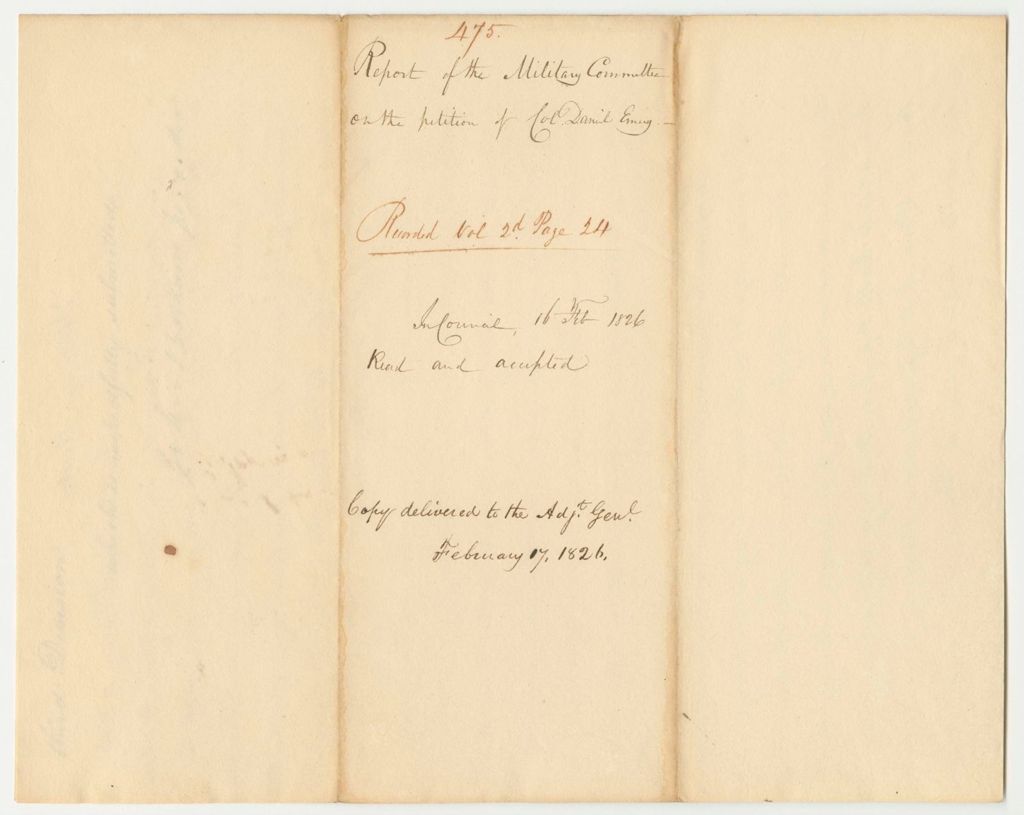 475.
Report of the Military Committee
on the petition of Col. Daniel Emery.
Recorded Vol 2d Page 24
In Council, 16 Feb 1826
Read and accepted
Copy delivered to the Adjt. Genl.
February 17, 1826.